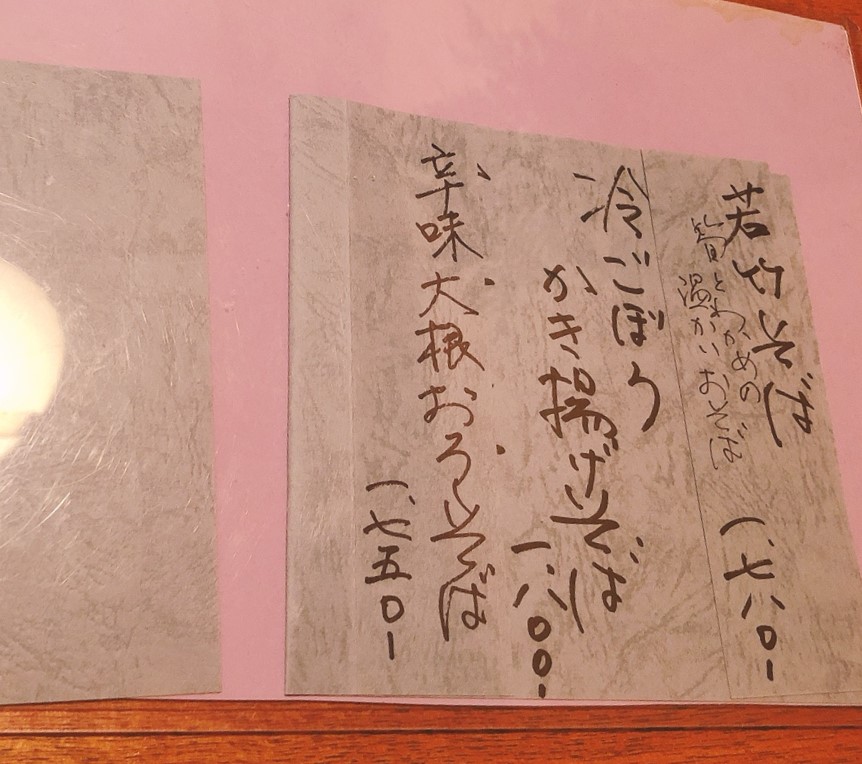 若竹そば
筍とわかめの
温かいおそば
一、七八〇ー
冷ごぼう
かき揚げそば
一、八〇〇ー
辛味大根おろしそば
一、七五〇ー